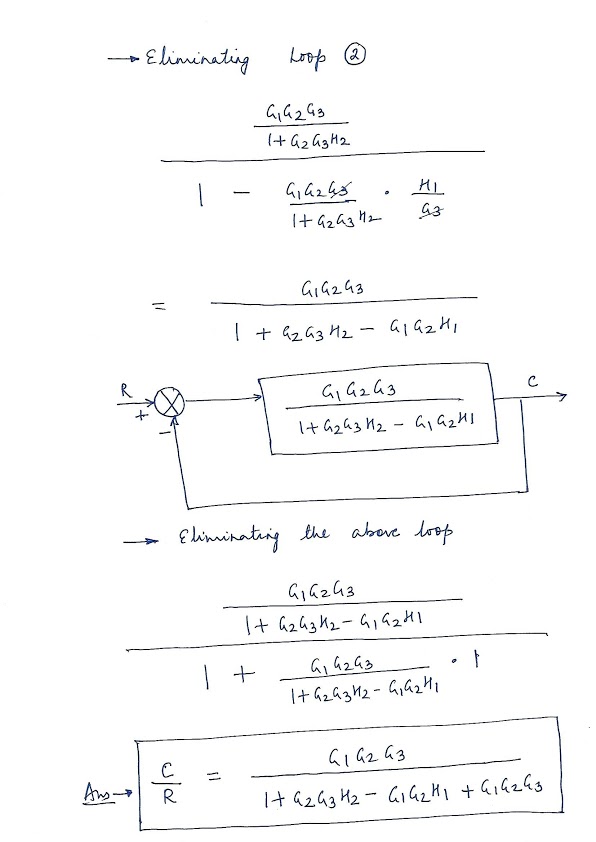 → Eliminating Loop ②
G1G2G3
1+G2G3H2
1 − G1G2G3 . H1
1+G2G3H2 G3
= G1G2G3
1 + G2G3H2 − G1G2H1
R + −
G1G2G3
1+G2G3H2 − G1G2H1
C
→ Eliminating the above loop
G1G2G3
1+G2G3H2−G1G2H1
1 + G1G2G3 . 1
1+G2G3H2−G1G2H1
Ans→ C/R = G1G2G3
1+G2G3H2−G1G2H1+G1G2G3